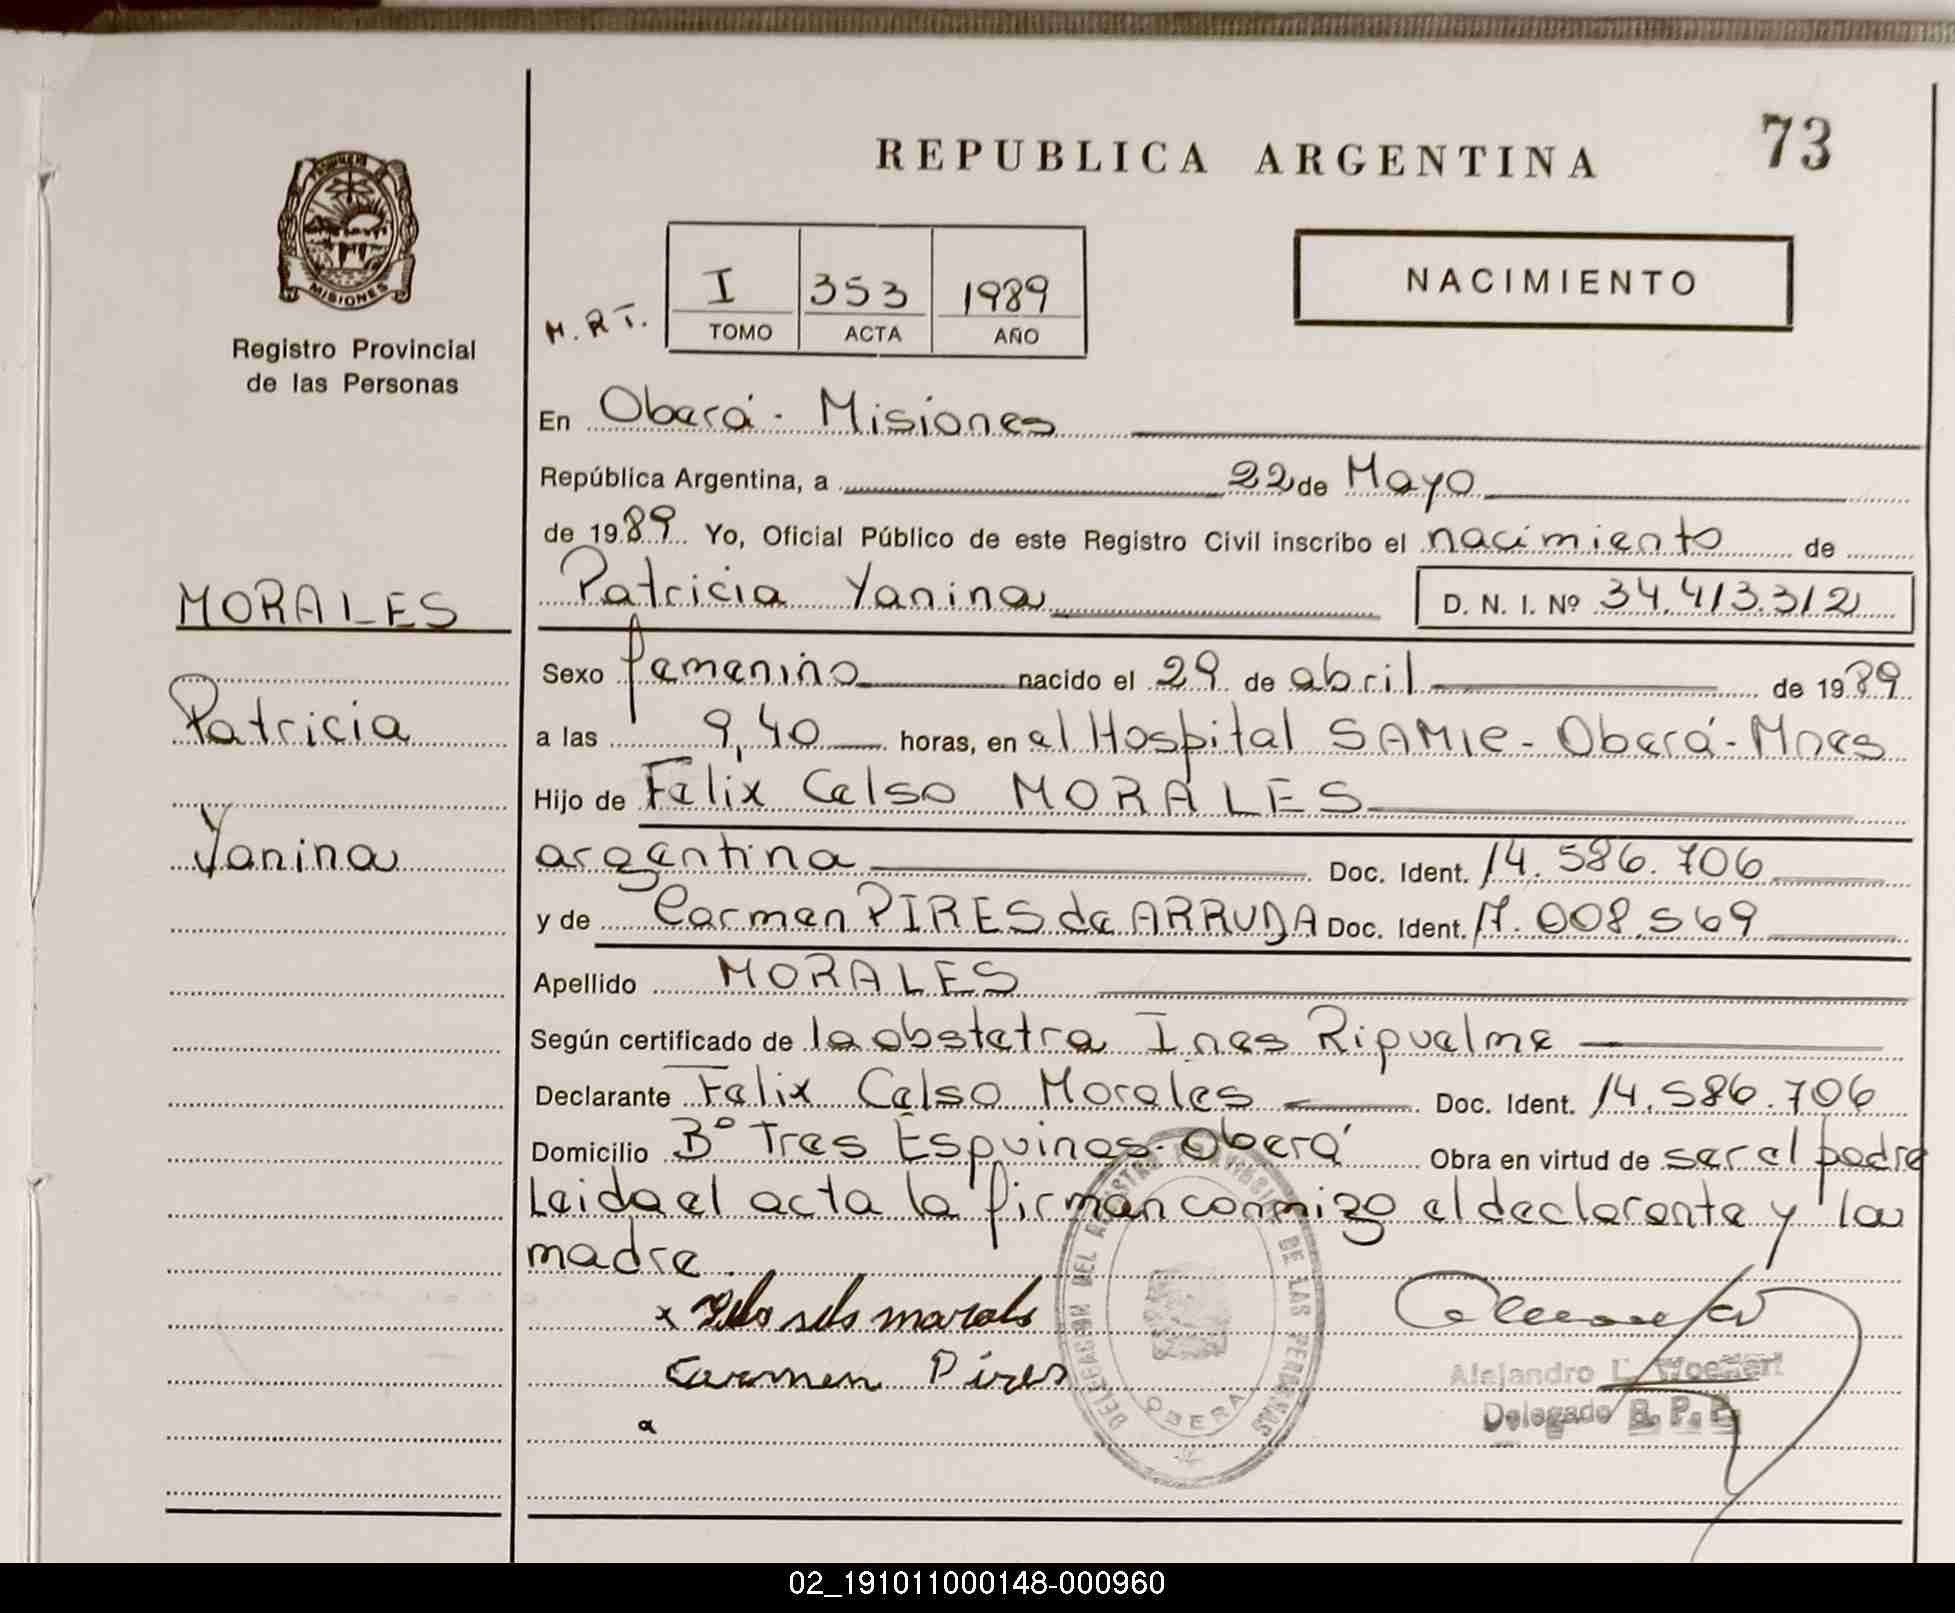 REPUBLICA ARGENTINA
73
MISIONES
Registro Provincial
de las Personas
M.R.T.
I
353
1989
TOMO
ACTA
AÑO
NACIMIENTO
En Oberá - Misiones
República Argentina, a 22 de Mayo
de 1989 Yo, Oficial Público de este Registro Civil inscribo el nacimiento de
Patricia Yanina D. N. I. Nº 34.413.312
MORALES
Patricia
Yanina
Sexo femenino nacido el 29 de abril de 1989
a las 9,40 horas, en el Hospital SAMIC - Oberá - Mnes
Hijo de Felix Celso MORALES
argentina Doc. Ident. 14.586.706
y de Carmen PIRES de ARRUDA Doc. Ident. 17.008.569
Apellido MORALES
Según certificado de la obstetra Ines Ripualme
Declarante Felix Celso Morales Doc. Ident. 14.586.706
Domicilio Bº Tres Esquinas - Oberá Obra en virtud de ser el padre
Leida el acta la firman conmigo el declarante y la
madre.
DELEGACION DEL REGISTRO PROVINCIAL DE LAS PERSONAS
OBERA
Carmen Pires
Alejandro L.
Delegado R. P. P.
02_191011000148-000960